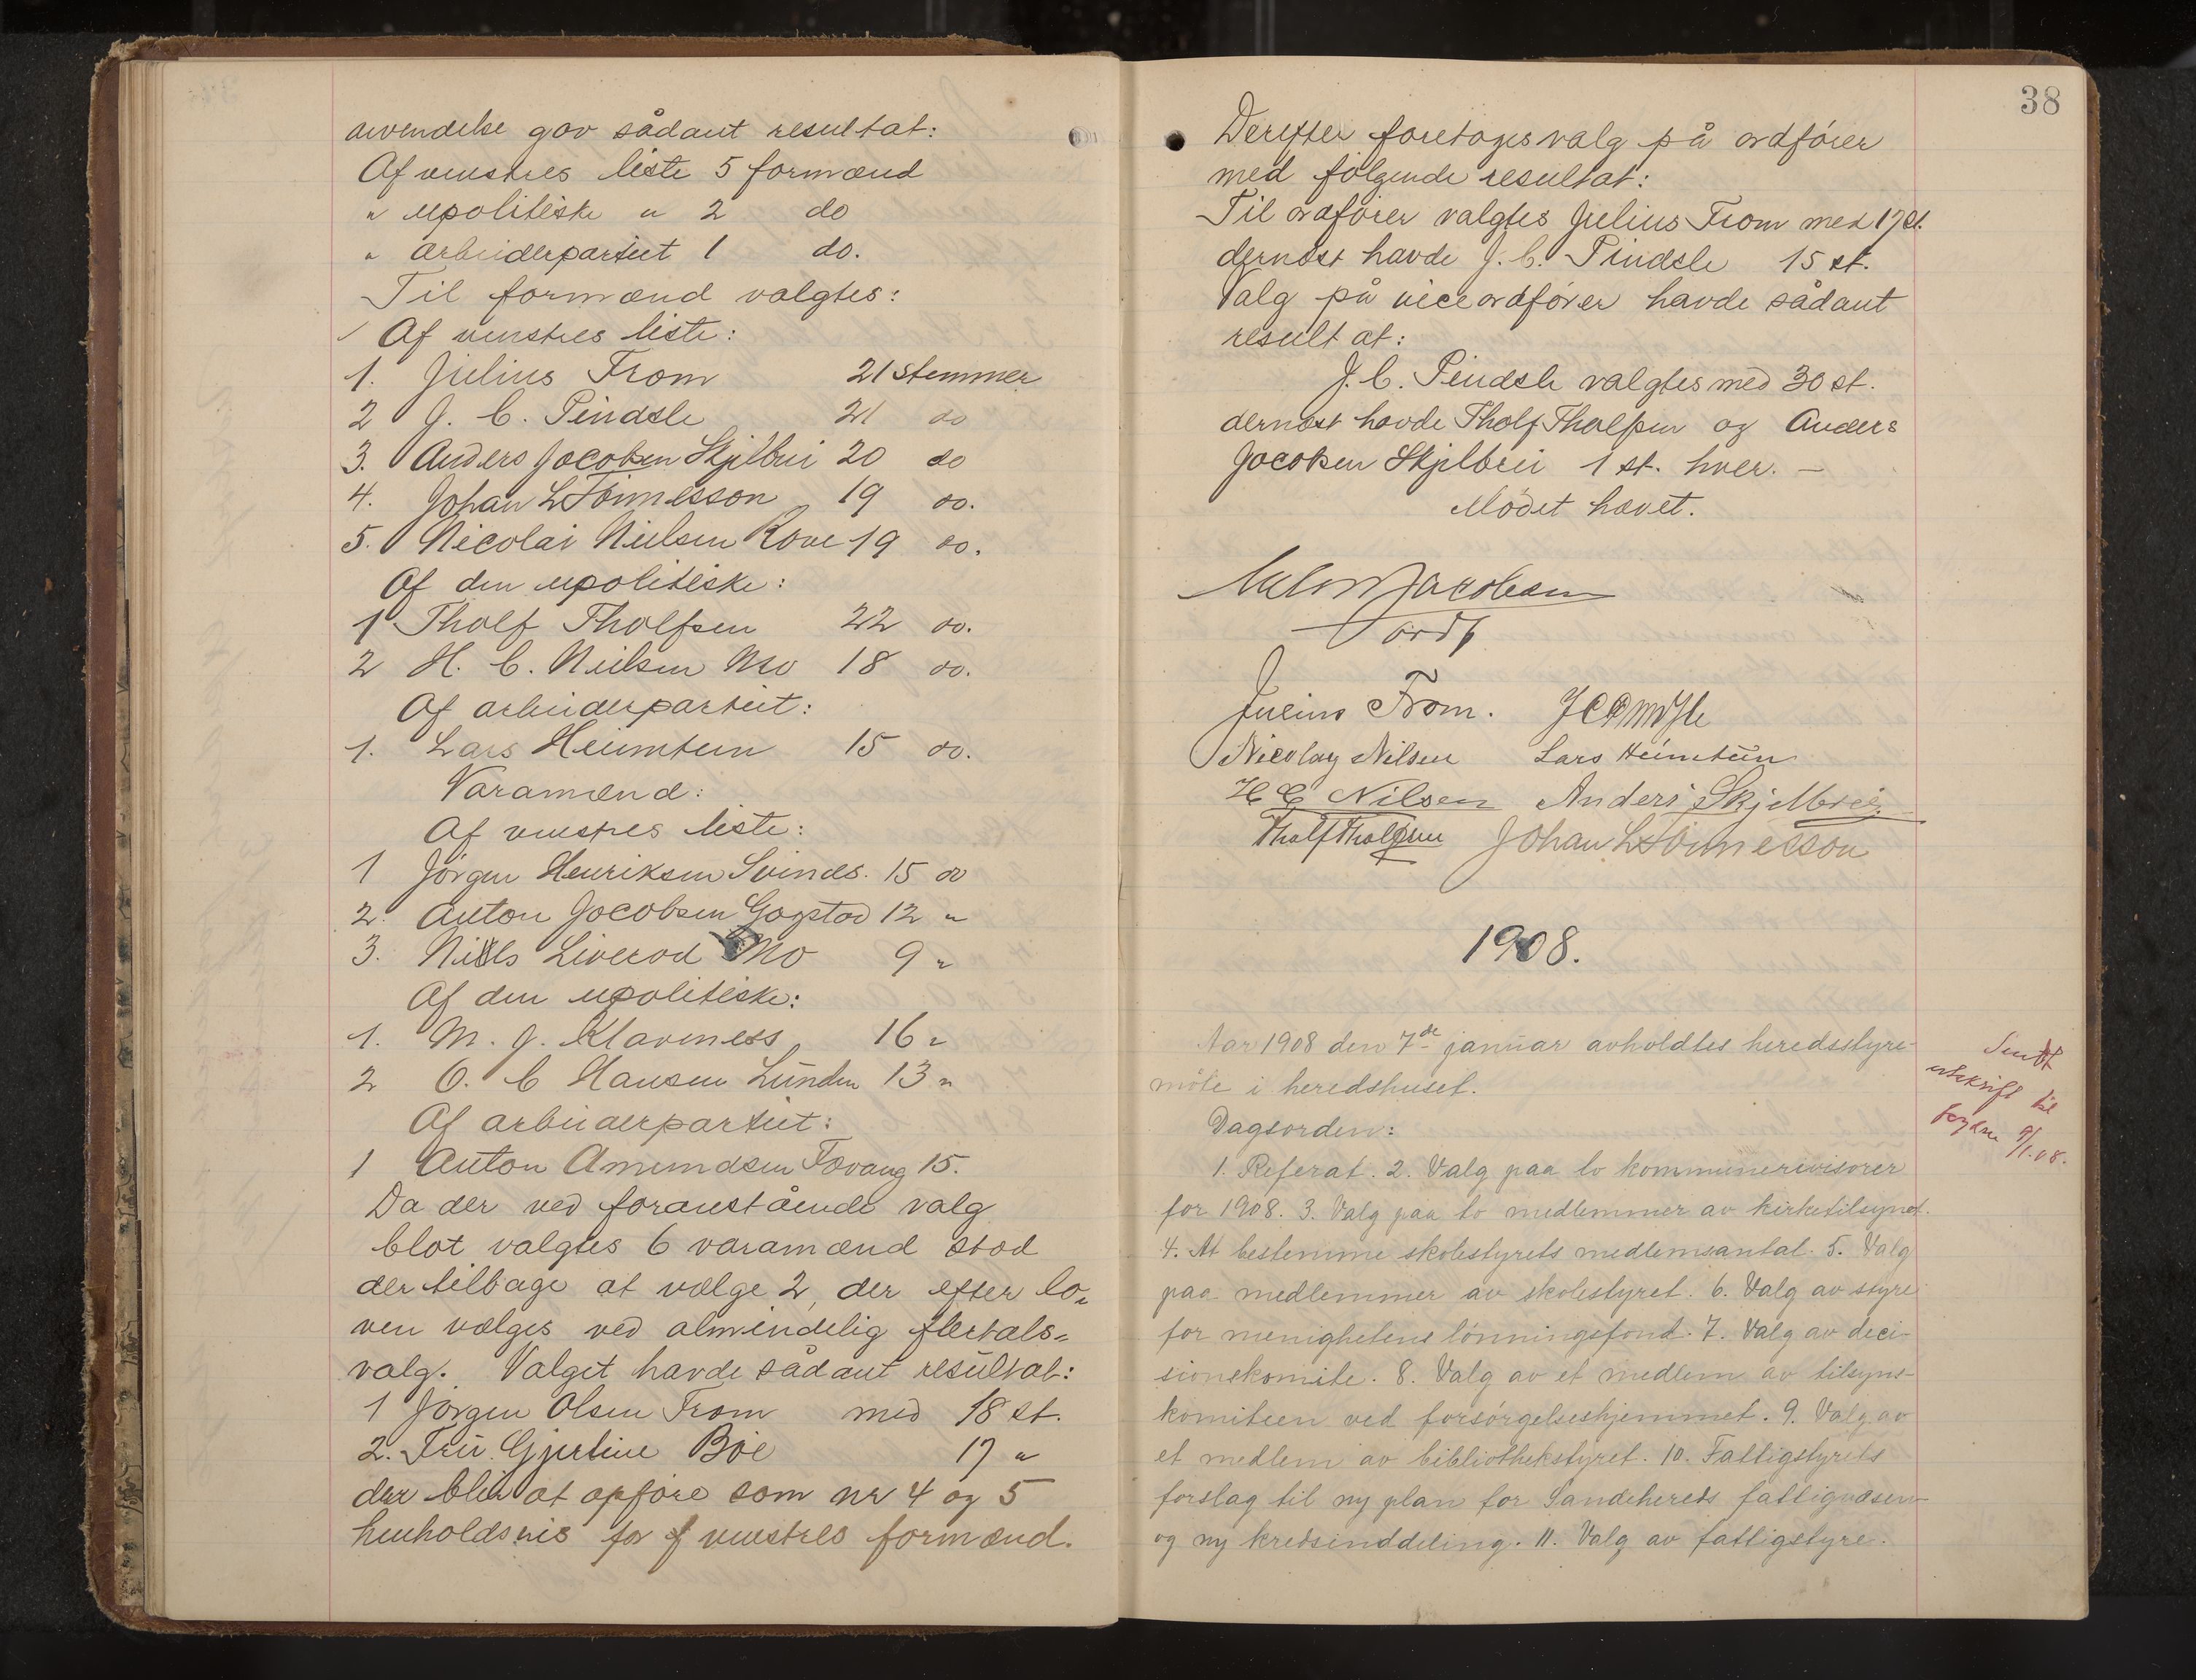 anvendelse gav sådant resultat:
Af venstres liste 5 formænd
" upolitiske " 2 do
" arbeiderpartiet 1 do.
Til formænd valgtes:
Af venstres liste:
1. Julius From 21 stemmer
2 J. C. Pindsle 21 do
3. Anders Jacobsen Skjelbrei 20 do
4. Johan L Tönnesson 19 do.
5. Nicolai Nielsen Rove 19 do.
Af den upolitiske:
1 Tholf Tholfsen 22 do.
2 H. C. Nielsen Mo 18 do.
Af arbeiderpartiet:
1. Lars Heimtun 15 do.
Varamænd:
Af venstres liste:
1 Jörgen Henriksen Svines. 15 do
2. Anton Jacobsen Gogstad 12 "
3. Niels Liverød Mo 9 "
Af den upolitiske:
1. M. J. Klavness 16 "
2 O. C Hansen Lunden 13 "
Af arbeiderpartiet:
1 Anton Amundsen Fevang 15.
Da der ved foranstående valg
blot valgtes 6 varamænd stod
der tilbage at vælge 2, der efter lo-
ven vælges ved almindelig flertals-
valg. Valget havde sådant resultat:
1 Jörgen Olsen From med 18 st.
2. Fru Gjertine Böe 17 "
der blir at opföre som nr 4 og 5
henholdsvis for venstres formænd.
38
Derefter foretoges valg på ordförer
med følgende resultat:
Til ordförer valgtes Julius From med 17 st.
dernæst havde J. C. Pindsle 15 st.
Valg på viceordförer havde sådant
resultat:
J. C. Pindsle valgtes med 30 st.
dernæst havde Tholf Tholfsen og Anders
Jacobsen Skjelbrei 1 st. hver. —
Mödet hævet.
Jacobsen
ordf
Julius From. J C Pindsle
Nicolay Nilsen Lars Heimtun
H C Nilsen Anders Skjelbrei.
Tholf Tholfsen Johan L Tönnesson
1908.
Aar 1908 den 7de januar avholdtes heredsstyre-
möte i heredshuset.
Sendt
utskrift til
fogden 9/1.08.
Dagsorden:
1. Referat. 2. Valg paa to kommunerevisorer
for 1908. 3. Valg paa to medlemmer av kirketilsynet.
4. At bestemme skolestyrets medlemsantal. 5. Valg
paa medlemmer av skolestyret. 6. Valg av styre
for menighetens lönningsfond. 7. Valg av deci-
sionskomite. 8. Valg av et medlem av tilsyns-
komiteen ved forsörgelseshjemmet. 9. Valg av
et medlem av bibliothekstyret. 10. Fattigstyrets
forslag til ny plan for Sandehereds fattigvæsen
og ny kredsinddeling. 11. Valg av fattigstyre.